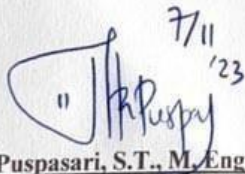 7/11
'23
Puspasari, S.T., M.Eng